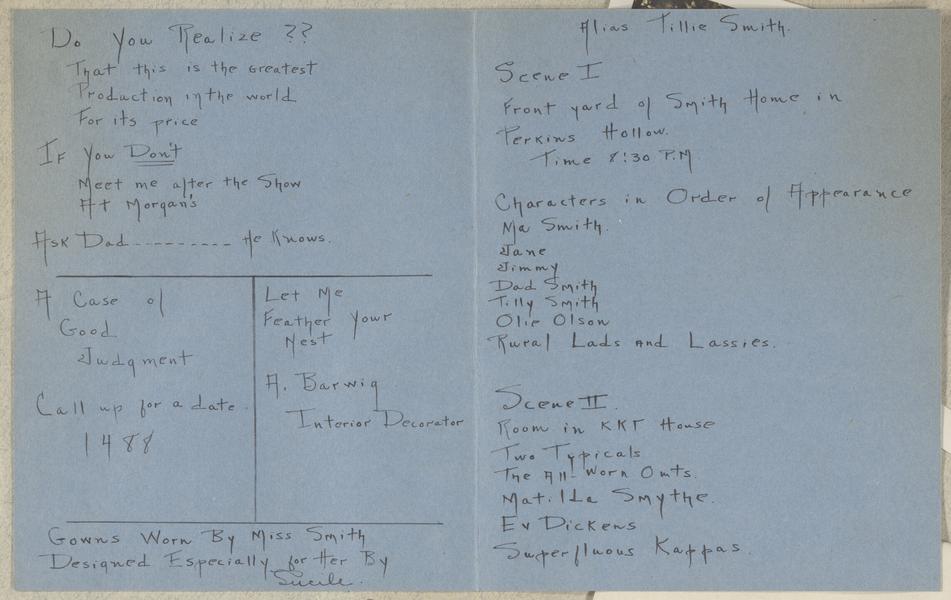 Do You Realize ??
That this is the Greatest
Production in the world
For its price
If You Don't
Meet me after the Show
At Morgan's
Ask Dad---------- He Knows.
A Case of
Good
Judgment
Call up for a date.
1488
Let Me
Feather Your
Nest
A. Barwig
Interior Decorator
Gowns Worn By Miss Smith
Designed Especially for Her By
Lucile.
Alias Tillie Smith.
Scene I
Front yard of Smith Home in
Perkins Hollow.
Time 8:30 P.M
Characters in Order of Appearance
Ma Smith.
Jane
Jimmy
Dad Smith
Tilly Smith
Olie Olson
Rural Lads And Lassies.
Scene II.
Room in KKΓ House
Two Typicals
The All-Worn Outs.
Matilda Smythe.
Ev Dickens
Superfluous Kappas.